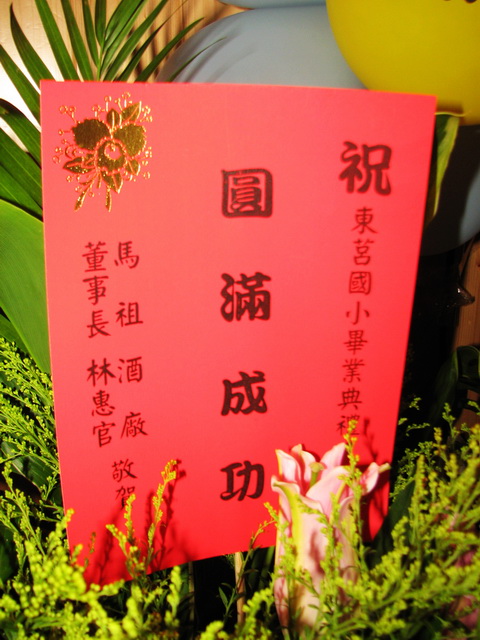 祝 東莒國小畢業典禮
圓滿成功
馬祖酒廠
董事長 林惠官 敬賀